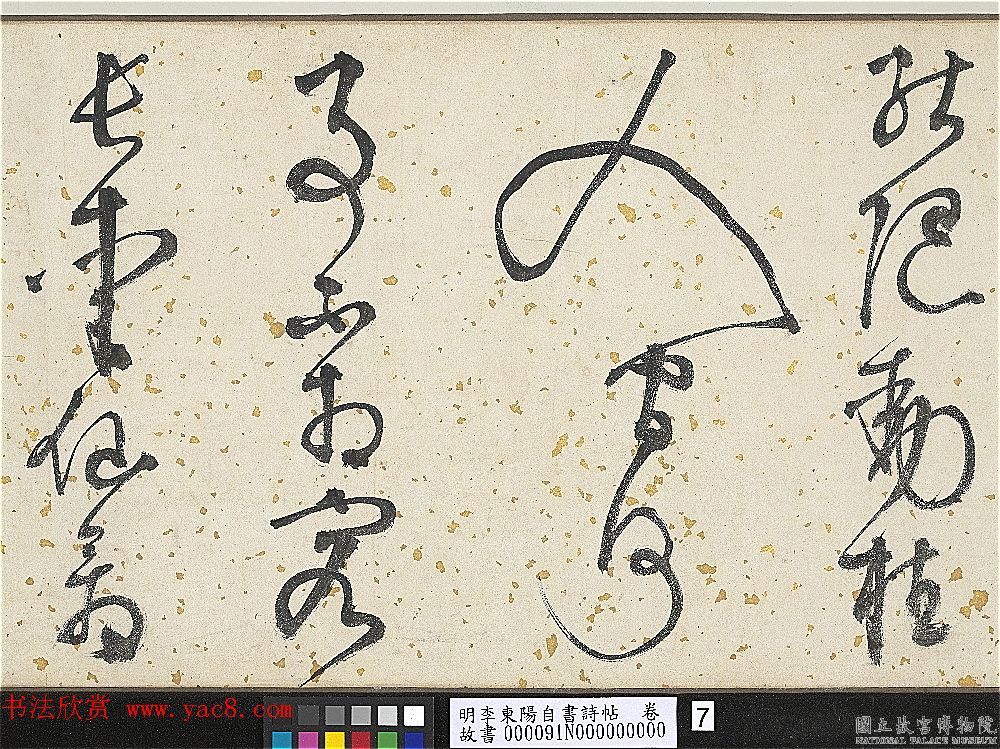 動植
人間何
事不相容
長
书法欣赏 www.yac8.com
明李東陽自書詩帖 卷
故書 000091N000000000
7
國立故宮博物院
NATIONAL PALACE MUSEUM